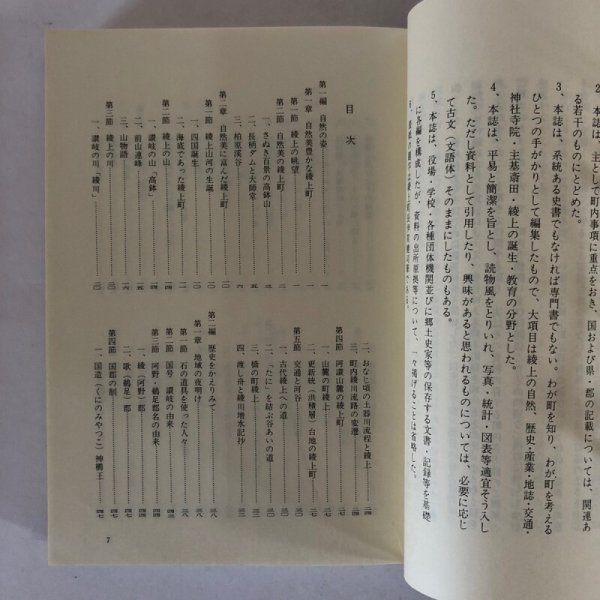 2、本誌は、主として町内事項に重点をおき、国および県・郡の記載については、関連あ
る若干のものにとどめた。
3、本誌は、系統ある史書でもなければ専門書でもない。わが町を知り、わが町を考える
ひとつの手がかりとして編集したもので、大項目は綾上の自然、歴史・産業・地誌・交通・
神社寺院・主基斎田・綾上の誕生・教育の分野とした。
4、本誌は、平易と簡潔を旨とし、読物風をとりいれ、写真・統計・図表等適宜そう入し
た。ただし資料として引用したり、興味があると思われるものについては、必要に応じ
て古文（文語体）そのままにしたものもある。
5、本誌は、役場・学校・各種団体機関並びに郷土史家等の保存する文書・記録等を基礎
に各編を構成したが、資料の出所原拠等について、一々掲げることは省略した。
目次
第一編 自然の姿
第一章 自然美豊かな綾上町
第一節 綾上の眺望
第二節 自然美の綾上町
一、さぬき百景の高鉢山
二、長柄ダムと大師堂
三、柏原渓谷
第二章 自然美に富んだ綾上町
第一節 綾上山河の生誕
一、四国誕生
二、海底であった綾上町
第二節 綾上の山
一、讃岐の山「高鉢」
二、前山連路
三、山物語
第三節 綾上の川
一、讃岐の川「綾川」
二、おなじ項の土器川流程と綾上
三、町内綾川流路の変遷
第四節 阿讃山麓の綾上町
一、山麓の町綾上
二、更新統（洪積層）台地の綾上町
第五節 交通と河谷
一、古代綾上への道
二、「たに」を結ぶ谷あいの道
三、橋の町綾上
四、渡し舟と綾川増水記抄
第二編 歴史をかえりみて
第一章 地域の夜明け
第一節 石の道具を使った人々
第二節 国号 讃岐の由来
第三節 阿野・鵜足郡名の由来
一、綾（阿野）郡
二、歌（鵜足）郡
第四節 国郡の制
一、国造（くにのみやつこ）神櫛王
7